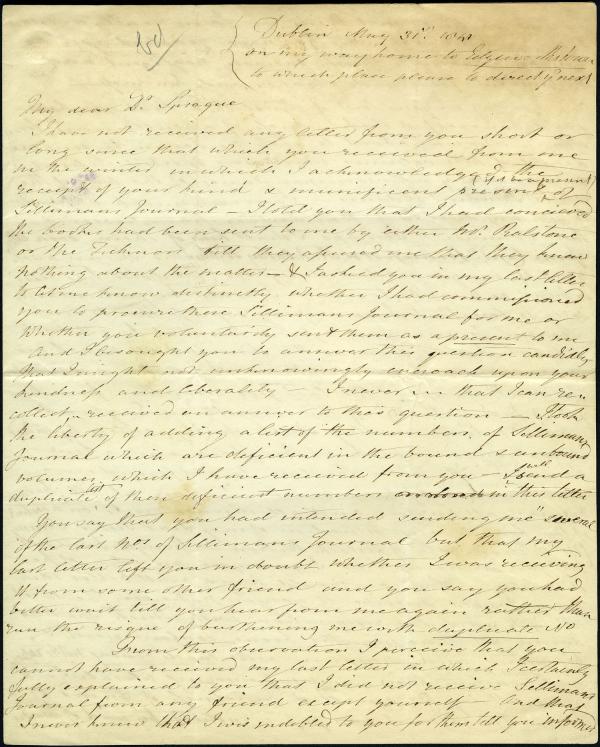 Dublin May 31st
on my way home to
to which place please to direct yr next
My dear Dr Sprague
I have not received any letter from you short or
long since that which you received from me
in the winter in which I acknowledged the
receipt of your kind & munificent present of
Sillimans Journal – I told you that I had conceived
the books had been sent to me by either Mr. Ralstone
or the Ticknors till they assured me that they knew
nothing about the matter – & I asked you in my last letter
to let me know distinctly whether I had commissioned
you to procure these Sillimans Journal for me or
whether you voluntarily sent them as a present to me
And I besought you to answer this question candidly
that I might not unknowingly encroach upon your
kindness and liberality I never that I can re-
collect, received an answer to this question – I took
the liberty of adding a list of the numbers of Sillimans
Journal which are deficient in the bound & unbound
volumes which I have received from you – I will send a
duplicate list of these deficient numbers in this letter
You say that you had intended sending me "several
of the last Nos of Sillimans Journal but that my
last letter left you in doubt whether I was receiving
it from some other friend and you say you had
better wait till you hear from me again rather than
run the risque of burthening me with duplicate No
From this observation I perceive that you
cannot have received my last letter in which I certainly
fully explained to you that I did not receive Sillimans
Journal from any friend except yourself and that
I never knew that I was indebted to you for them till you informed